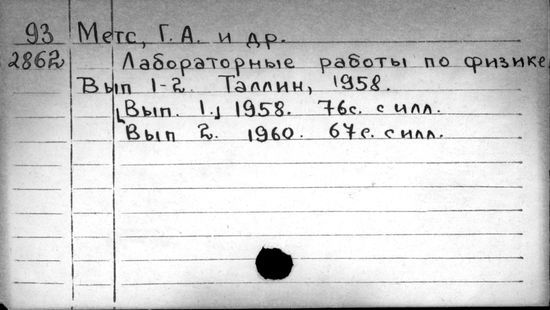 93 Метс, Г. А. и др.
2862 Лабораторные работы по физике
Вып 1-2. Таллин, 1958.
[Вып. 1.] 1958. 76с. с илл.
Вып 2. 1960. 67с. с илл.